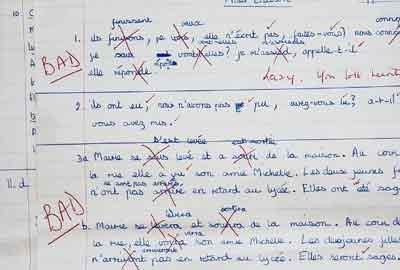 finissent veux
1. ils finissons, je vois, elle n'écrit pas, faites-vous? nous
je suis vont-elles? je m'assied, appelle-t-il
BAD
elle réponde
Lazy.
2. ils ont eu, nous n'avons pas pu, avez-vous lu? a-t-il
vous avez mis.
s'est levée est sortie
3a Marie se suis levé et a sorti de la maison. Au cour
la rue elle a vu son amie Michelle. Les deux jeunes
ne sont pas arrivés
n'ont pas arrivé en retard au lycée. Elles ont été sage
11.d.
BAD
lèvera sortira
b. Marie se lèvera et sortira de la maison. Au cour d
verra
la rue, elle voira son amie Michelle. Les deux jeunes filles
n'arrivont pas en retard au lycée. Elles seront sages.